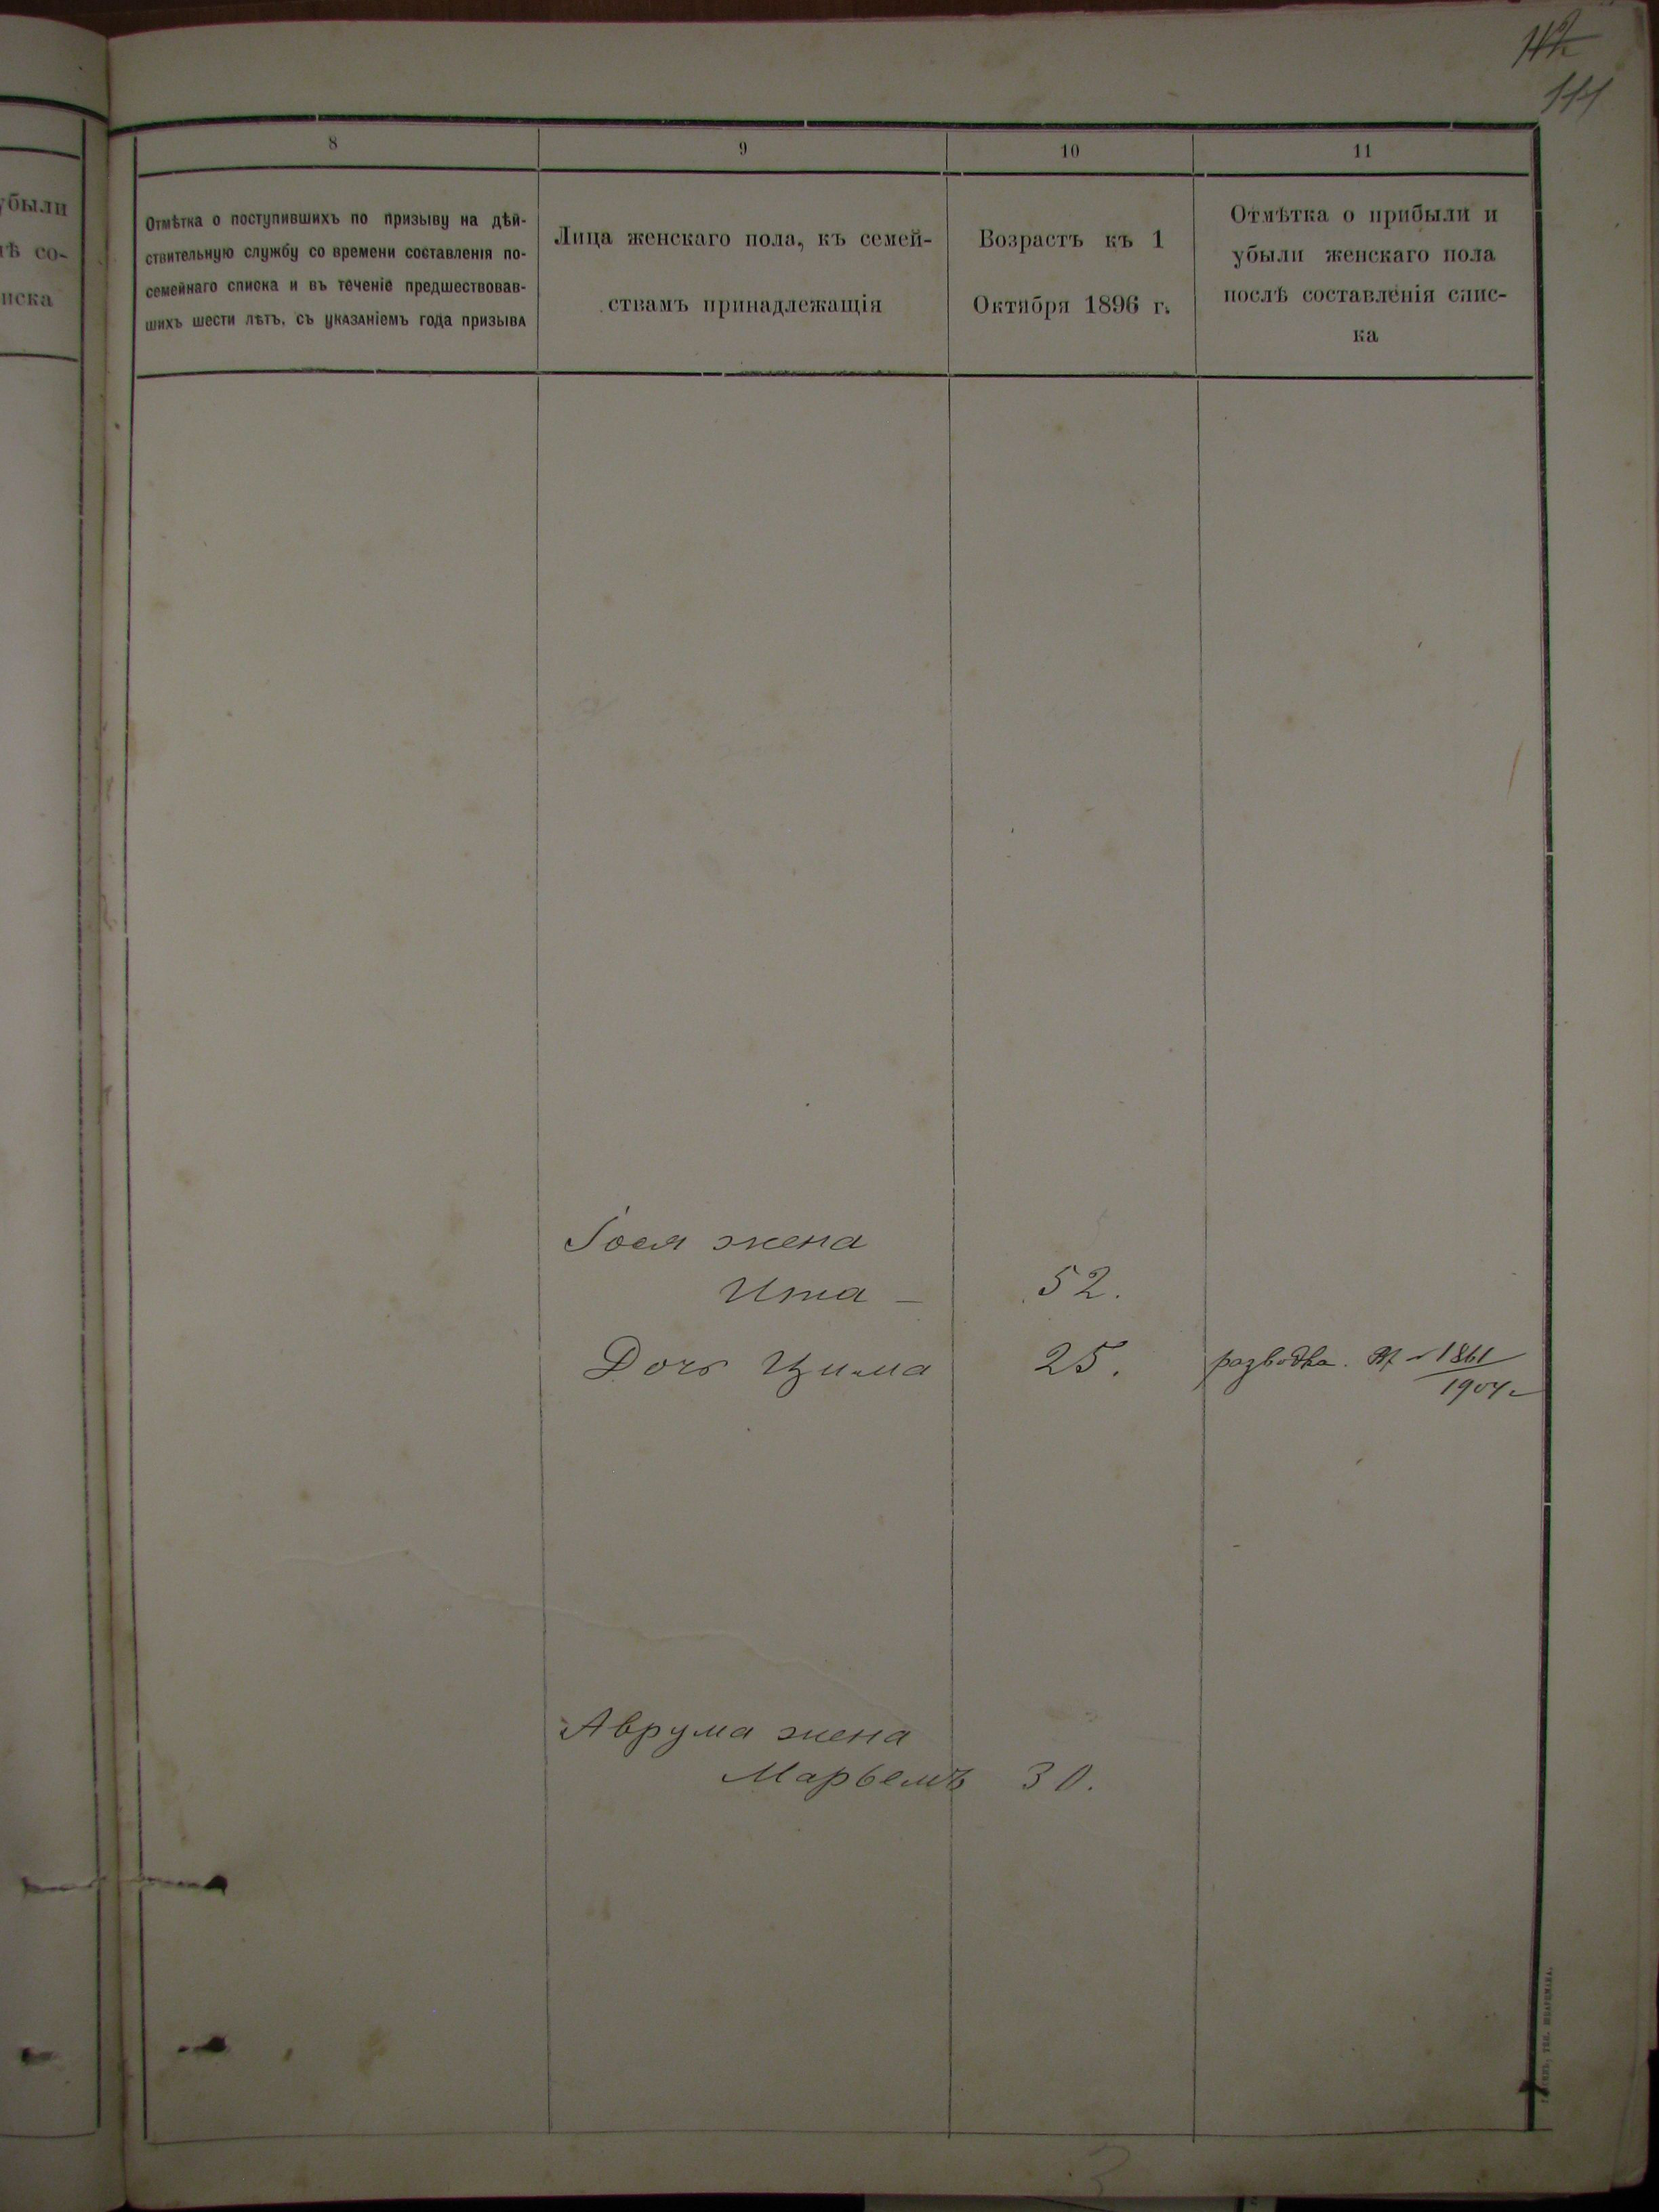 112
111
убыли
лѣ со-
писка
8
9
10
11
Отмѣтка о поступившихъ по призыву на дѣй-
ствительную службу со времени составленія по-
семейнаго списка и въ теченіе предшествовав-
шихъ шести лѣтъ, съ указаніемъ года призыва
Лица женскаго пола, къ семей-
ствамъ принадлежащія
Возрастъ къ 1
Октября 1896 г.
Отмѣтка о прибыли и
убыли женскаго пола
послѣ составленія спис-
ка
Іося жена
Ита — 52.
Дочь Цима 25. разводка. 1861
1904
Аврума жена
Марьемъ 30.